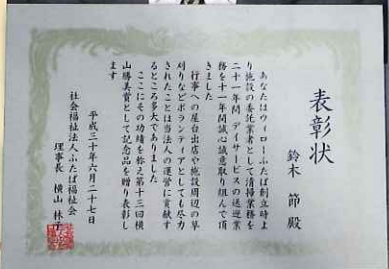 表彰状
鈴木 節 殿
あなたはウェローふたば創立時よ
り施設の委託業者として清掃業務を
二十一年間、デイサービスの送迎業
務を十一年間誠心誠意取り組んで頂
きました
行事への屋台出店や施設周辺の草
刈りなどボランティアとしても尽力
されたことは当法人の運営に貢献す
るところ多大でありました
ここにその功績を称え第十三回横
山勝美賞として記念品を贈り表彰し
ます
平成三十年六月二十七日
社会福祉法人ふたば福祉会
理事長 横山 林